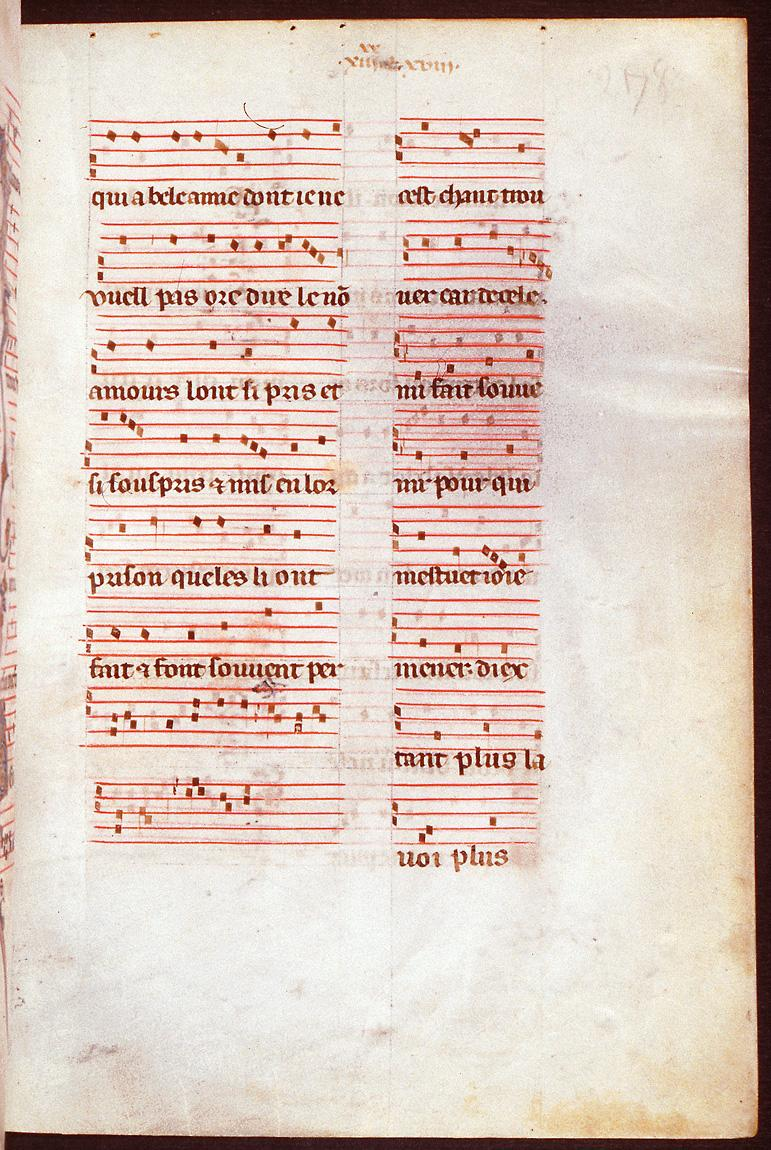 xx
xiiij. xviij.
278
qui a bele amie dont ie ne
vuell pas ore dire le nō
amours lont si pris et
si souspris ⁊ mis en lor
prison queles li ont
fait ⁊ font souuent per
cest chant trou
uer car de cele
mi fait souue
nir pour qui
mestuet ioie
mener. diex
tant plus la
uoi plus